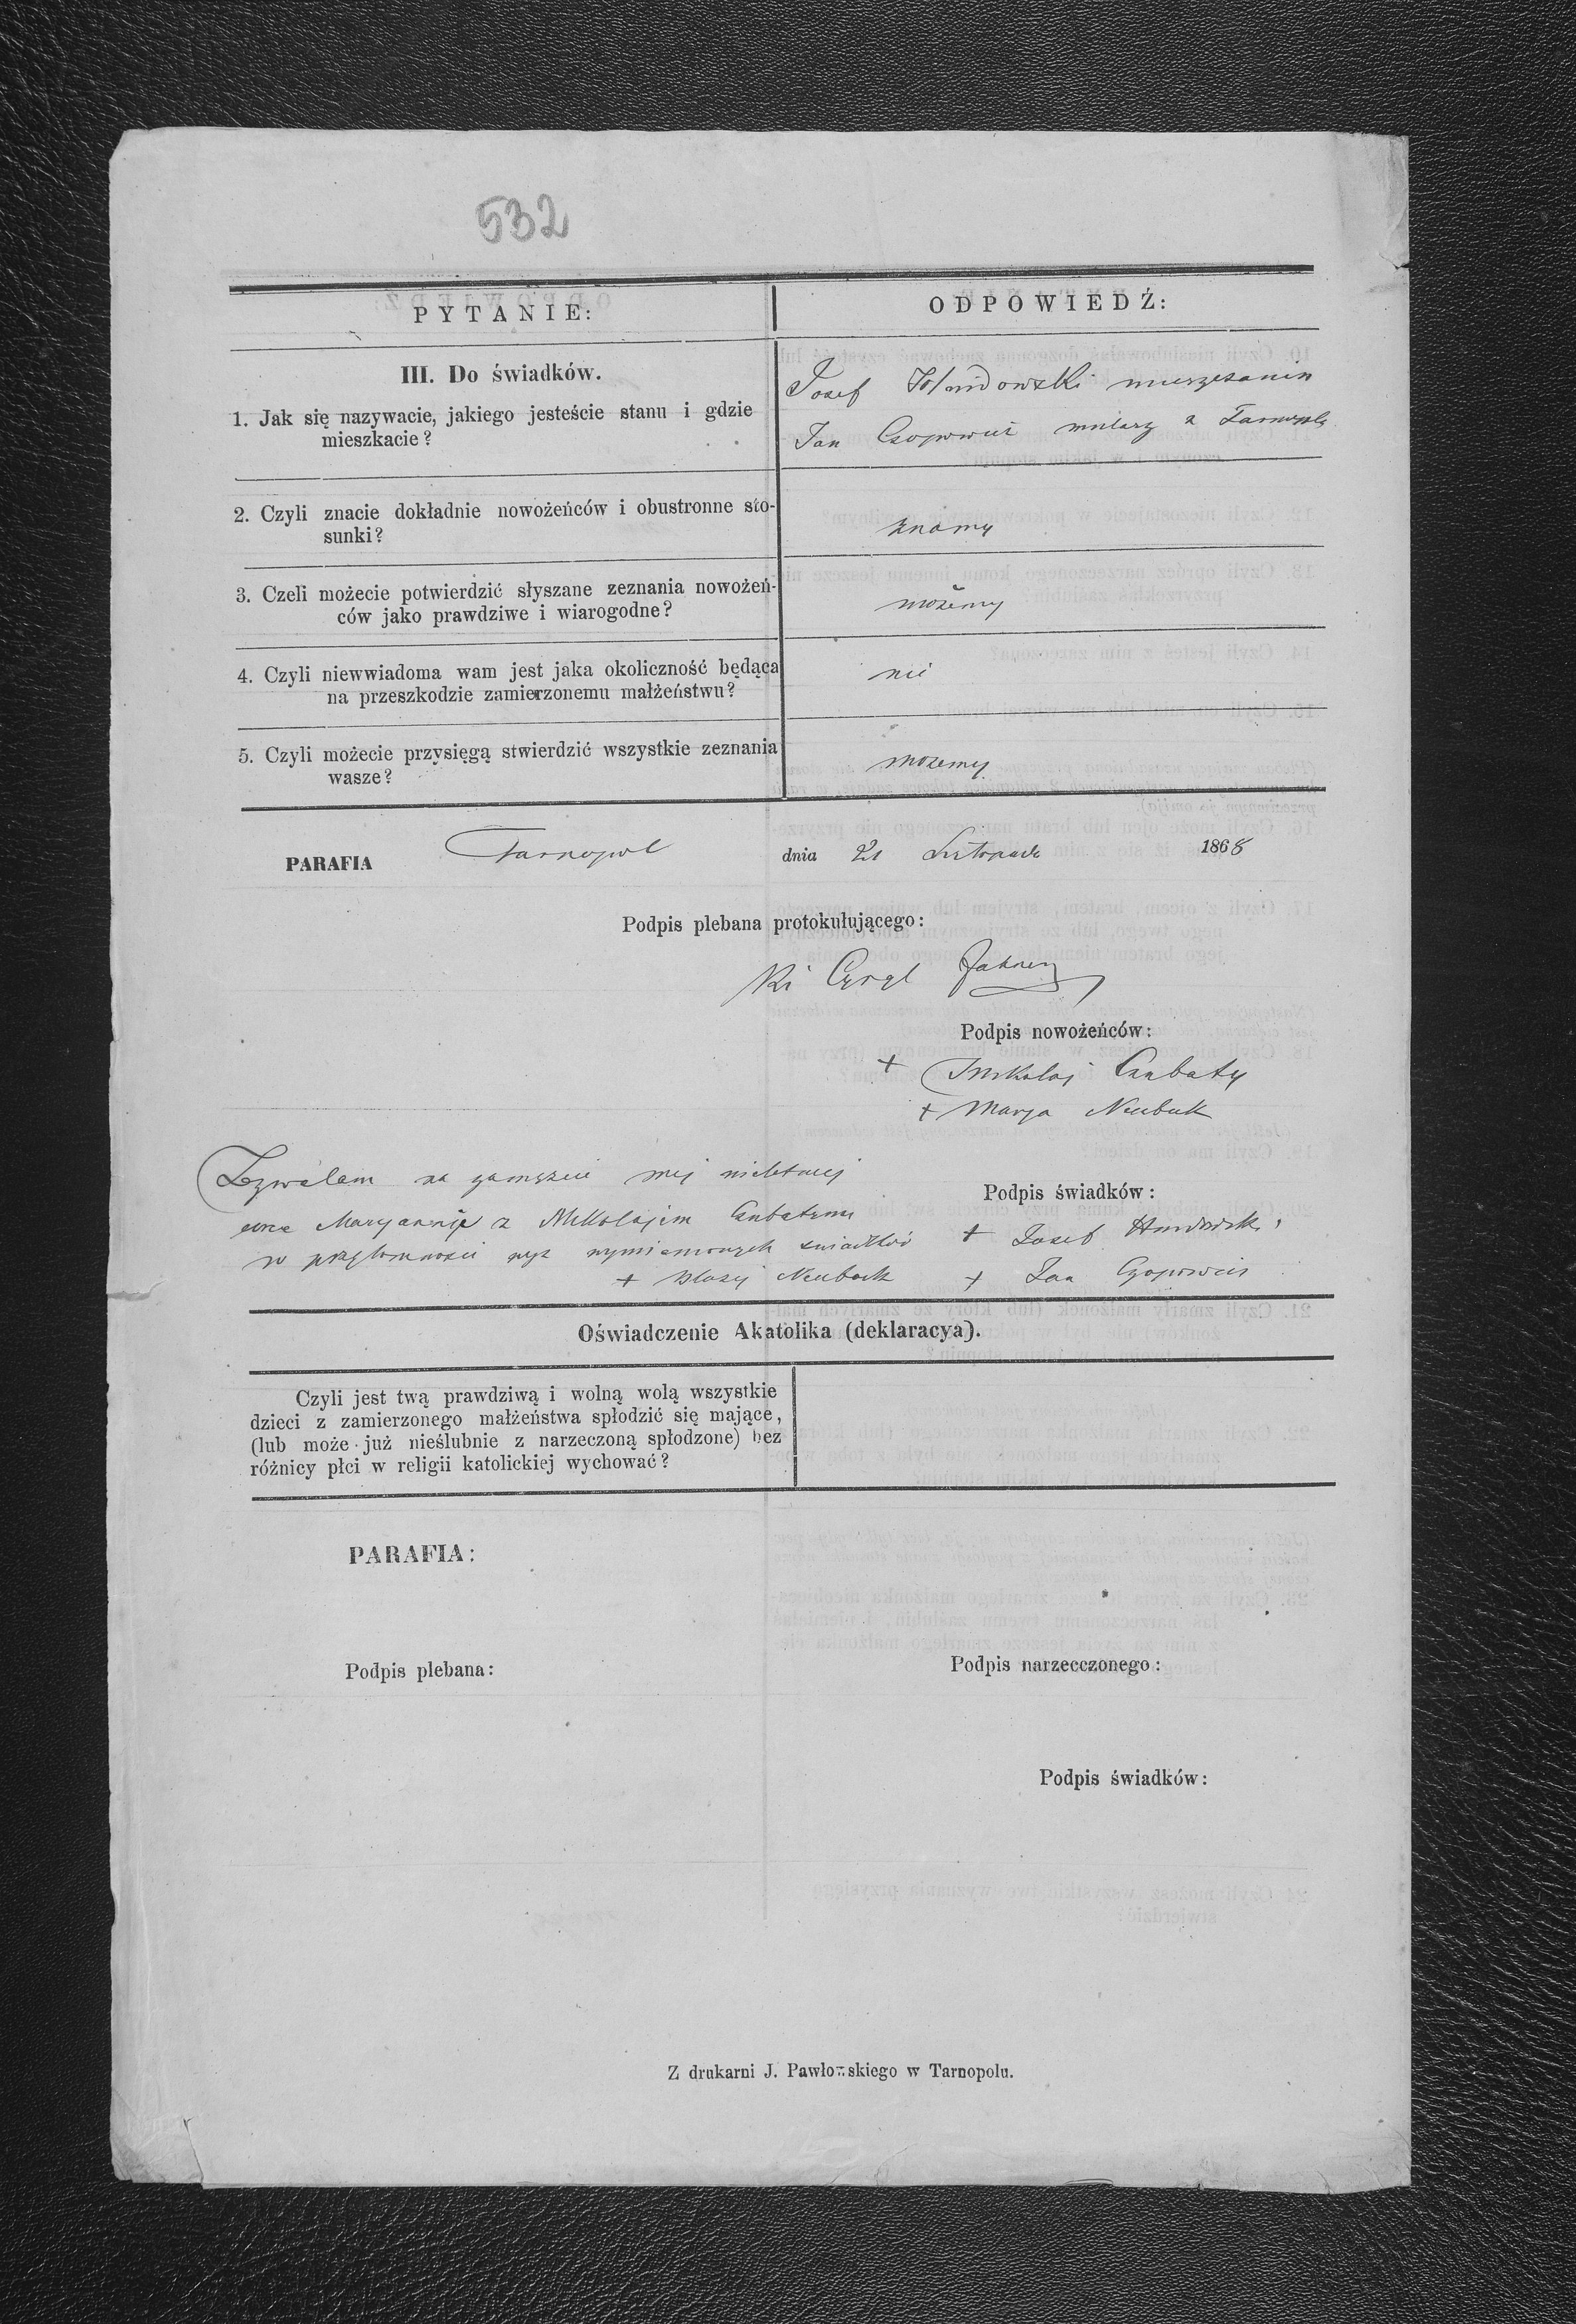 532
PYTANIE:
ODPOWIEDŹ:
III. Do świadków.
1. Jak się nazywacie, jakiego jesteście stanu i gdzie
mieszkacie?
Josef mieszczanin
Jan mularz z Tarnopola
2. Czyli znacie dokładnie nowożeńców i obustronne sto-
sunki?
znamy
3. Czeli możecie potwierdzić słyszane zeznania nowożeń-
ców jako prawdziwe i wiarogodne?
możemy
4. Czyli niewwiadoma wam jest jaka okoliczność będąca
na przeszkodzie zamierzonemu małżeństwu?
nie
5. Czyli możecie przysięgą stwierdzić wszystkie zeznania
wasze?
możemy
PARAFIA Tarnopol dnia 21 Listopada 1868
Podpis plebana protokułującego:
Podpis nowożeńców:
+ Mikolaj Czubaty
+ Marya Neubuk
Zezwalam na zamęzcie mej nieletniej
Maryannie z Mikolajem Czubatym
w wyz wymienionych swiadków
+ Błazej Neubock
Podpis świadków:
+ Josef
+ Jan
Oświadczenie Akatolika (deklaracya).
Czyli jest twą prawdziwą i wolną wolą wszystkie
dzieci z zamierzonego małżeństwa spłodzić się mające,
(lub może już nieślubnie z narzeczoną spłodzone) bez
różnicy płci w religii katolickiej wychować?
PARAFIA:
Podpis plebana:
Podpis narzecczonego:
Podpis świadków:
Z drukarni J. Pawłowskiego w Tarnopolu.